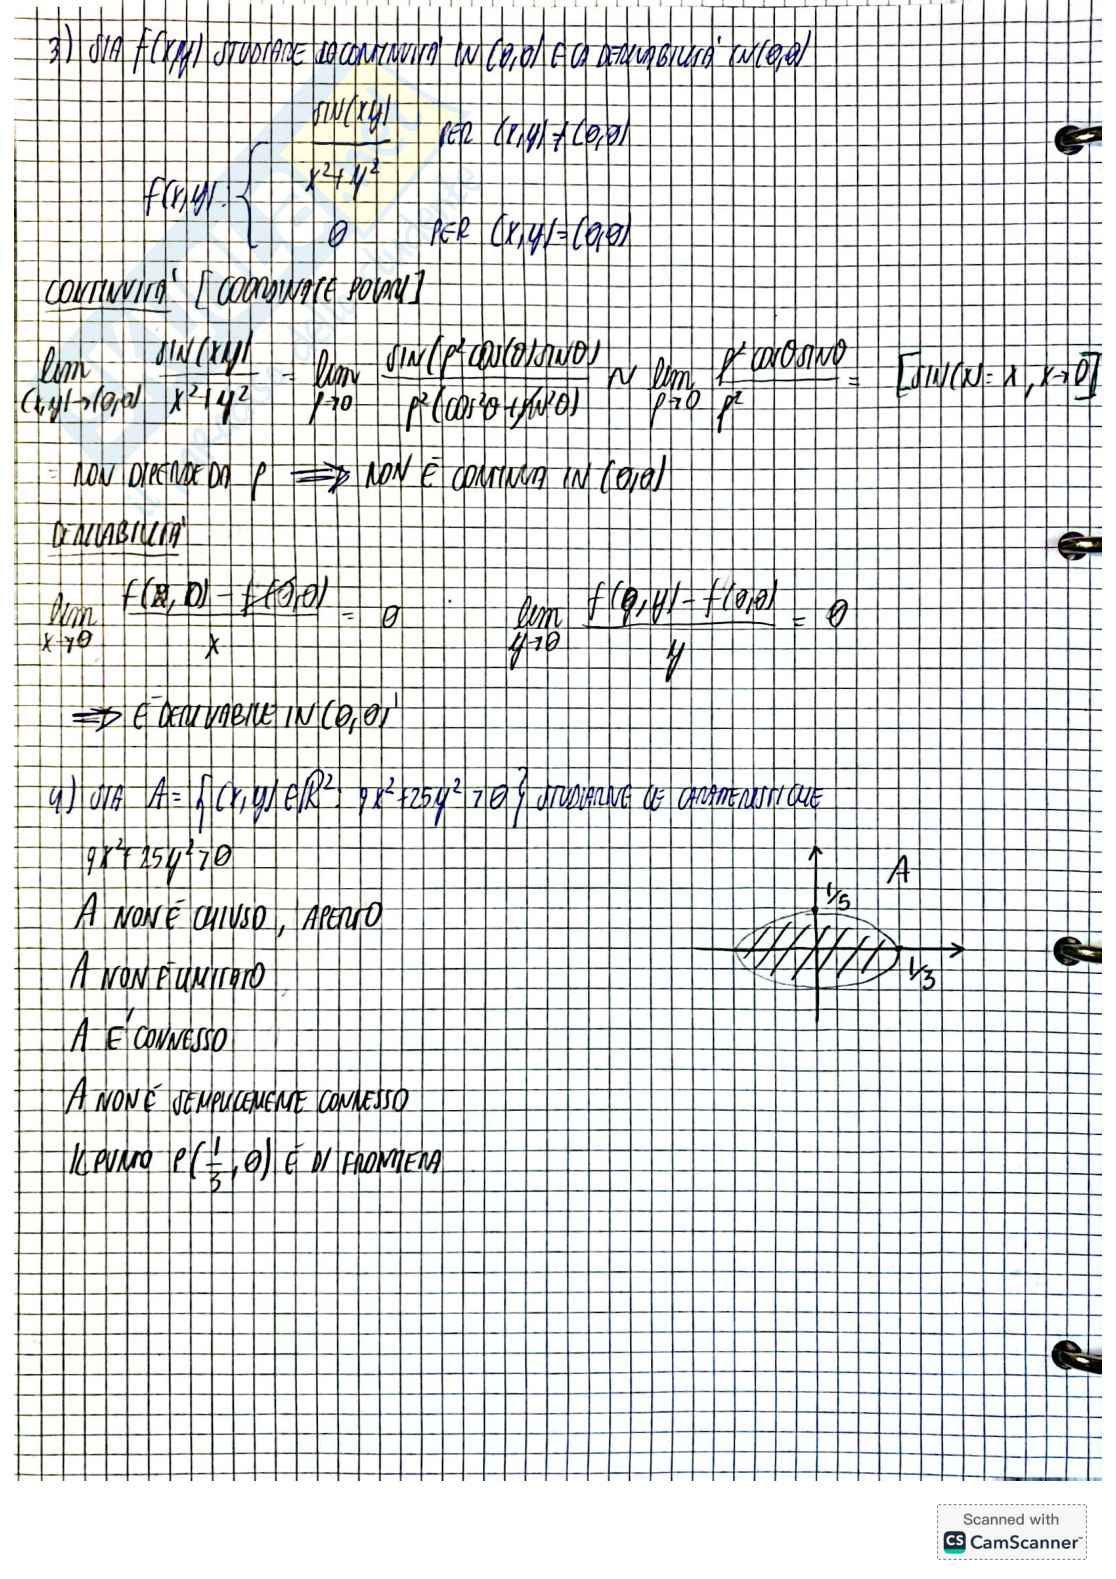 3) SIA f(x,y) STUDIARE LA CONTINUITÀ IN (0,0) E LA DERIVABILITÀ IN (0,0)
f(x,y): { SIN(xy) / x²+y² PER (x,y)≠(0,0)
0 PER (x,y)=(0,0)
CONTINUITÀ: [COORDINATE POLARI]
lim (x,y)→(0,0) SIN(xy) / x²+y² = lim ρ→0 SIN(ρ² cos(θ) sinθ) / ρ²(cos²θ+sin²θ) ~ lim ρ→0 ρ² cosθ sinθ / ρ² = [SIN(x)= x, x→0]
= NON DIPENDE DA ρ ⟹ NON È CONTINUA IN (0,0)
DERIVABILITÀ
lim x→0 f(x,0) - f(0,0) / x = 0 lim y→0 f(0,y) - f(0,0) / y = 0
⟹ È DERIVABILE IN (0,0)
4) SIA A= {(x,y)∈ℝ²: 9x²+25y²>0} STUDIARNE LE CARATTERISTICHE
9x²+25y²>0
A NON È CHIUSO, APERTO
A NON È LIMITATO
A È CONNESSO
A NON È SEMPLICEMENTE CONNESSO
IL PUNTO P(1/3, 0) È DI FRONTIERA
A
1/5
1/3
Scanned with
CS CamScanner